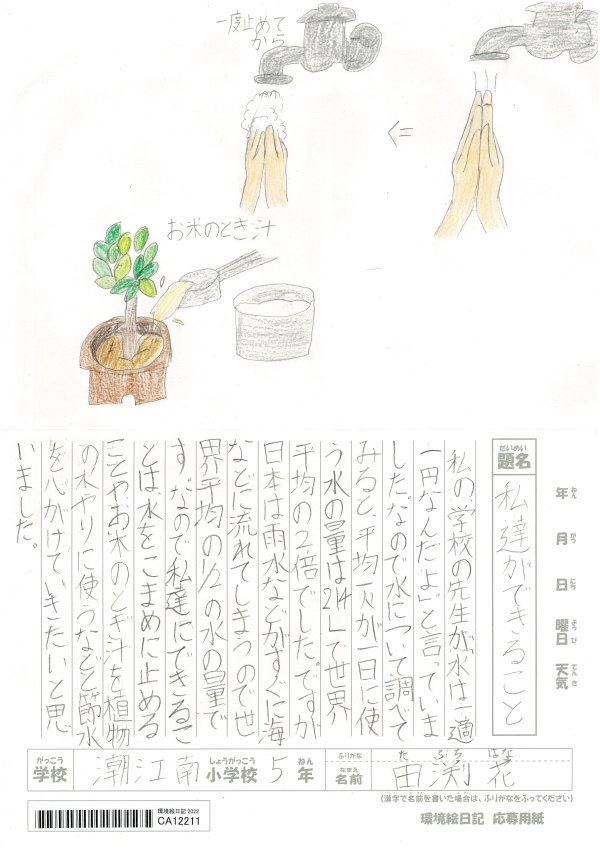 一度止めて
から
お米のとき汁
だいめい
題名
私達ができること
年 ねん
月 がつ
日 にち
曜日 ようび
天気 てんき
私の、学校の先生が「水は一適
一円なんだよ」と言っていま
した。なので水について調べて
みると、平均一人が一日に使
う水の量は214Lで世界
平均の2倍でした。ですが
日本は雨水などがすぐに海
などに流れてしまうので世
界平均の1/2の水の量で
す。なので私達にできるこ
とは、水をこまめに止める
ことや、お米のとぎ汁を植物
の水やりに使うなどと節水
を心がけていきたいと思
いました。
がっこう
学校
潮江南
しょうがっこう
小学校
5
ねん
年
ふりがな
なまえ
名前
た ぶち はな
田渕 花
(漢字で名前を書いた場合は、ふりがなをふってください)
環境絵日記 2022
CA12211
環境絵日記 応募用紙